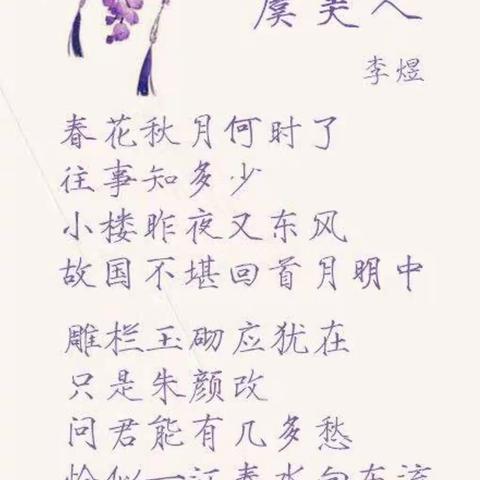 虞美人
李煜
春花秋月何时了
往事知多少
小楼昨夜又东风
故国不堪回首月明中
雕栏玉砌应犹在
只是朱颜改
问君能有几多愁
恰似一江春水向东流